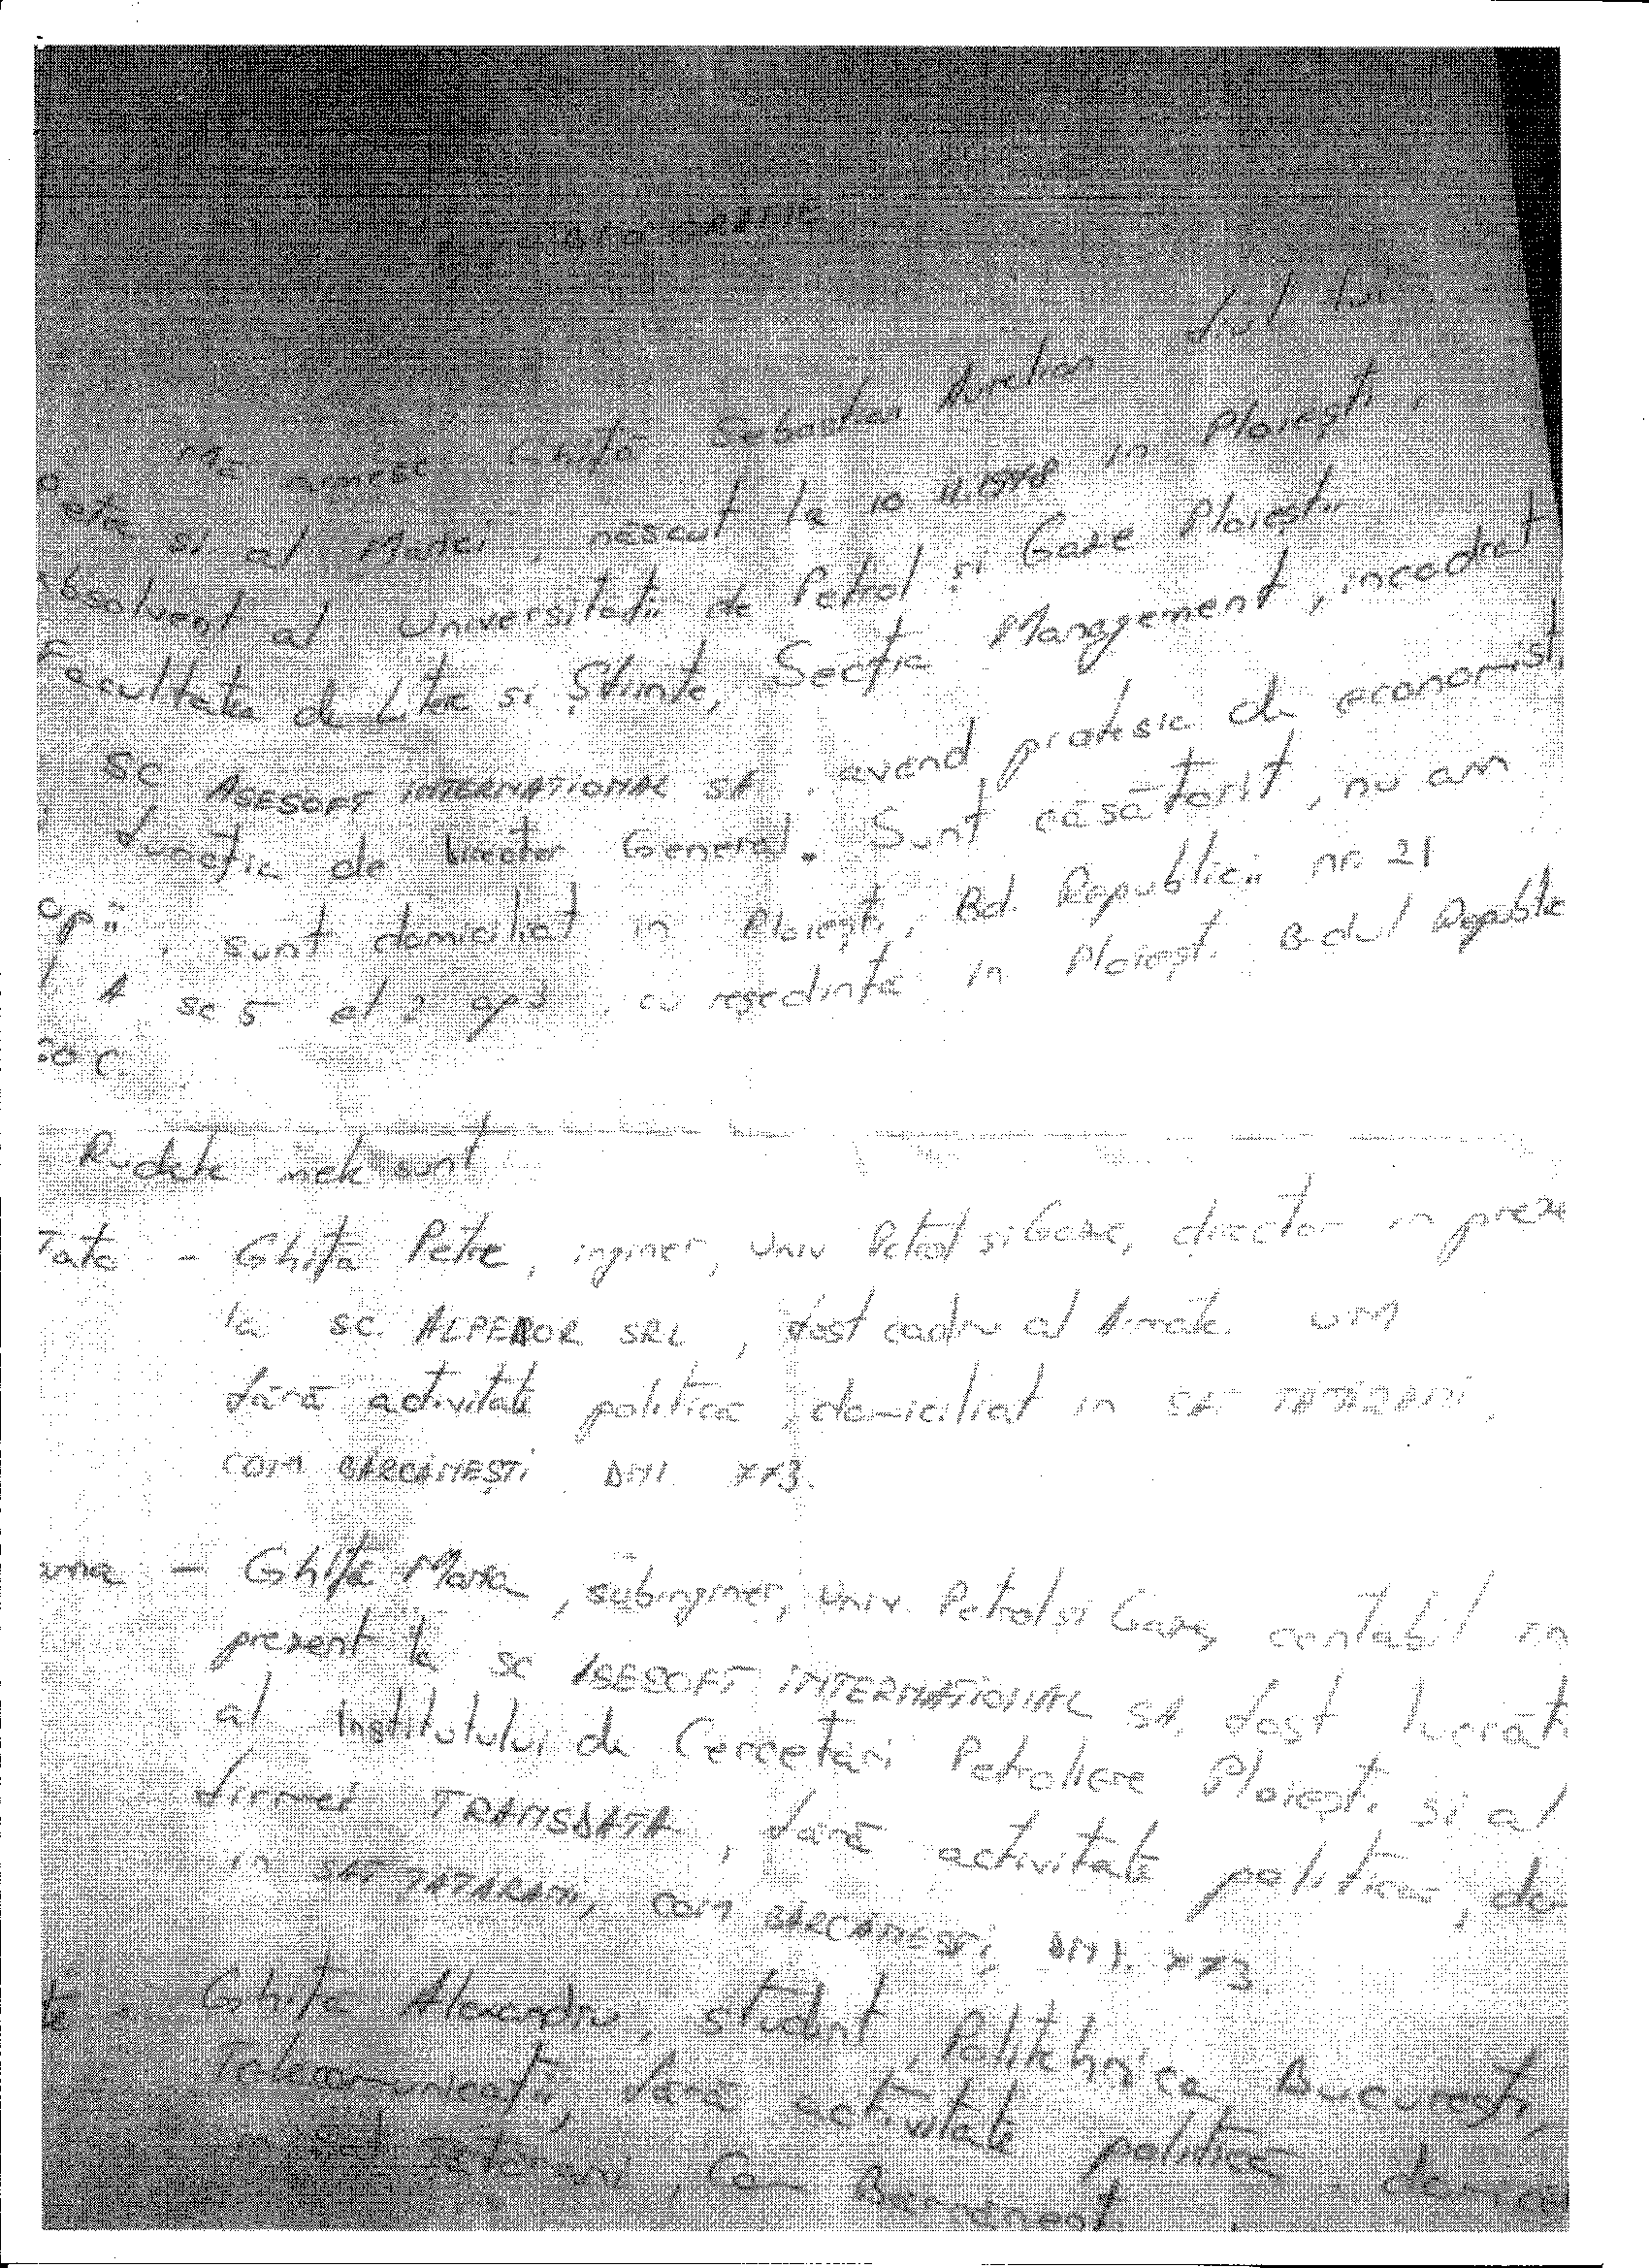 Mă numesc Ghiță Sebastian Aurelian fiul lui
si al Mariei, născut la 10 11.1978 in Ploiești,
absolvent al Universitatii de Petrol și Gaze Ploiești
Facultatea de Litere si Științe, Secția Management, incadrat
SC ASESOFT INTERNATIONAL SA, avand profesia de economist,
functia de Director General. Sunt căsătorit, nu am
opii, sunt domiciliat in Ploiești, Bd. Republicii nr 21
A sc 5 et 2 ap, cu reședinta in Ploiești B-dul Republic
20 C.
Rudele mele sunt
Tata - Ghiță Petre, inginer, Univ Petrol si Gaze, director in preze
la SC. ALPEROR SRL, fost cadru al Armatei UM
fără activitate politică, domiciliat in SAT TĂTĂRANI,
COM BĂRCĂNEȘTI DN1 773.
ama - Ghiță Maria, subinginer, Univ. Petrol si Gaze, contabil in
prezent la SC ASESOFT INTERNATIONAL SA, fost lucrăt
al Institutului de Cercetări Petroliere Ploiești si al
firmei TRANSDATA, fără activitate politică, do
in SAT TATARANI, COM BĂRCĂNEȘTI, DN1. 773
te : Ghiță Alexandru, student, Politehnica București,
Telecomunicații, fără activitate politică. domici
in Sat Tatarani, Com Barcanești